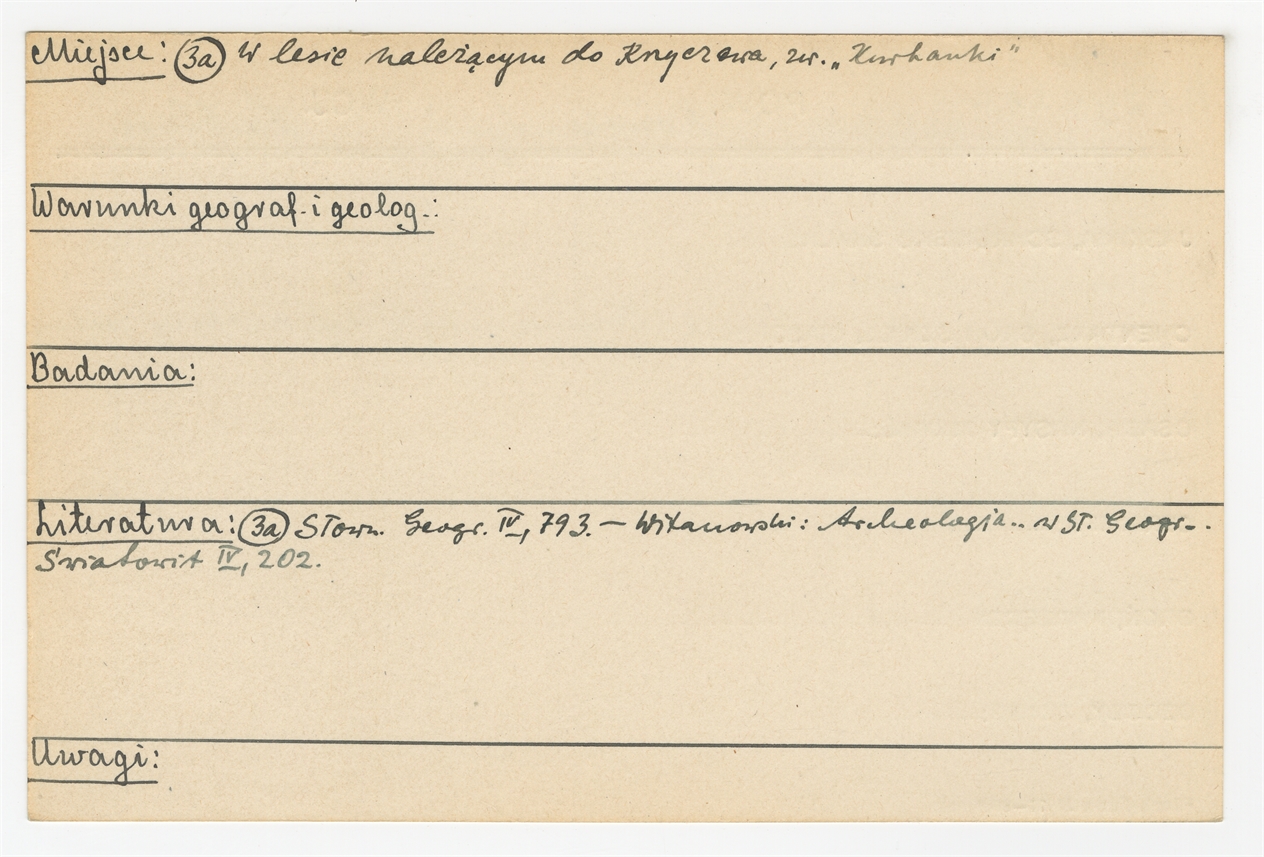 Miejsce: (3a) W lesie należącym do Kryczewa, zw. „Kurhanki"
Warunki geograf. i geolog.:
Badania:
Literatura: (3a) Słown. Geogr. IV, 793. — Witanowski: Archeologja.. w Sł. Geogr..
Światowit IV, 202.
Uwagi: